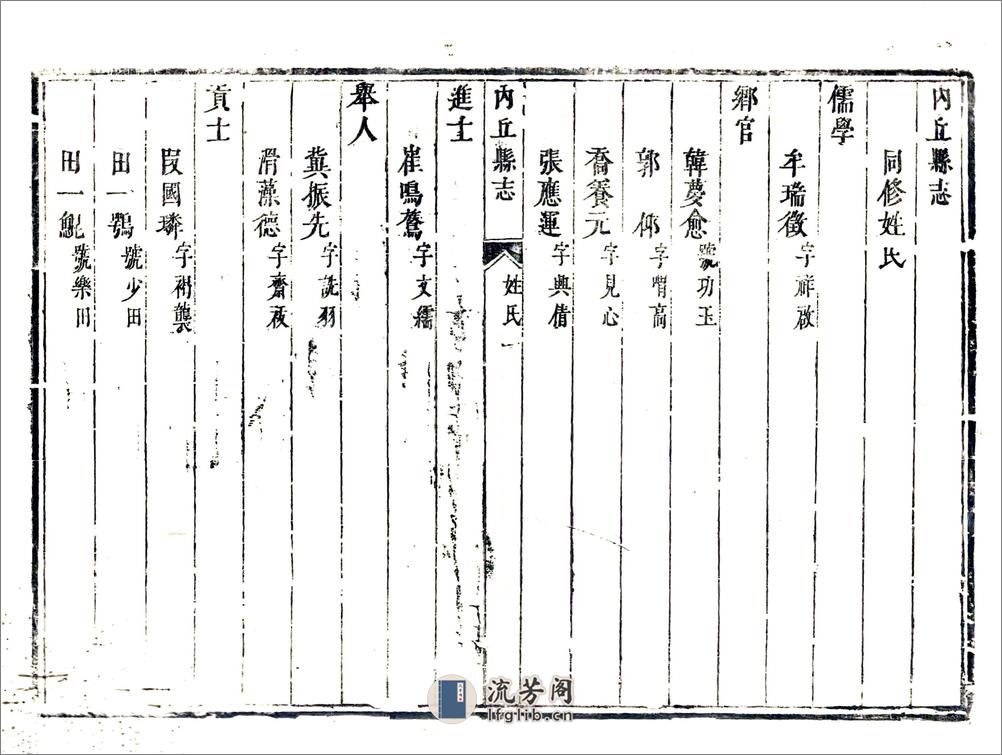 內丘縣志
同修姓氏
儒學
牟瑞徵 字祥啟
鄉官
韓夢愈 號功玉
郭仰 字喟高
喬養元 字見心
張應運 字興倩
內丘縣志 姓氏 一
進士
崔鳴鷟 字文繻
舉人
冀振先 字詵羽
滑藻德 字齋
貢士
段國璘 字裼襲
田一鶚 號少田
田一鯤 號樂田
流芳阁
lfglib.cn